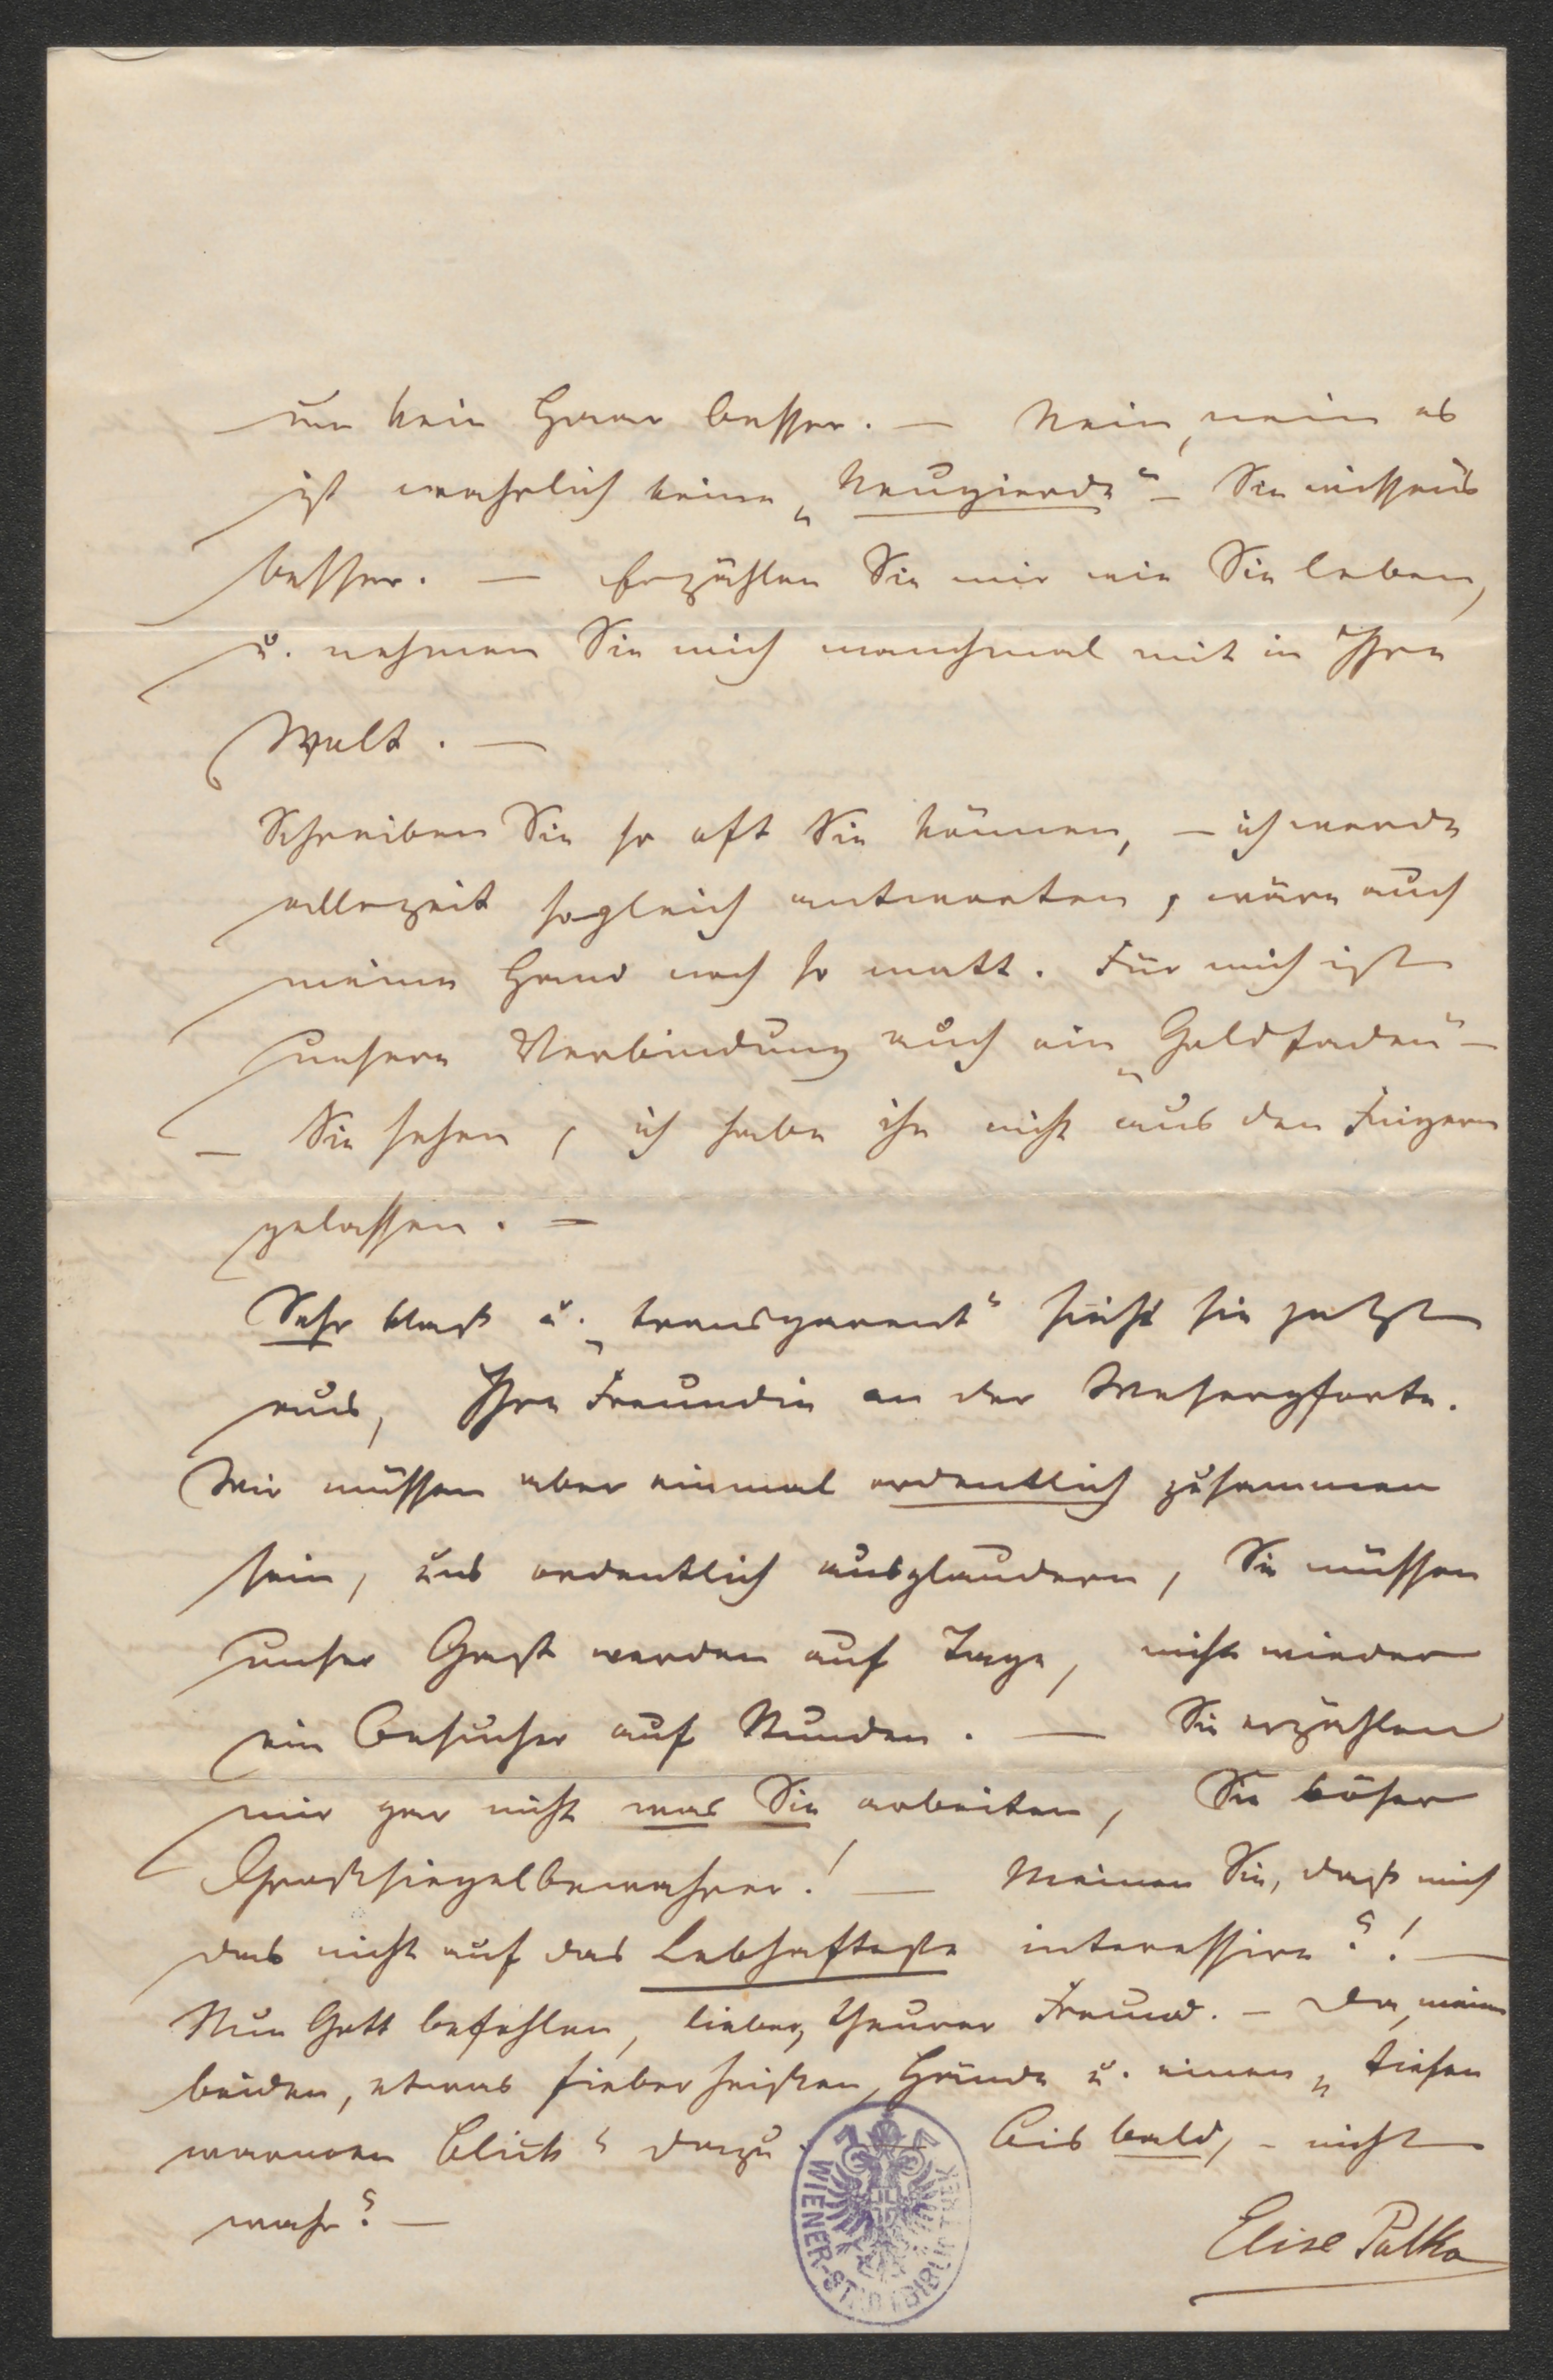 um kein Haar besser. — Nein, nein es
ist wahrlich keine „Neugierde“ — Sie wissen's
besser. — Erzählen Sie mir wie Sie leben,
u. nehmen Sie mich manchmal mit in Ihre
Welt. —
Schreiben Sie so oft Sie können, — ich werde
allezeit sogleich antworten, wäre auch
meine Hand noch so matt. Für mich ist
unsere Verbindung auch ein „Goldfaden“ —
— Sie sehen, ich habe ihn nicht aus den Fingern
gelassen. —
Sehr blaß u. „transparent“ sieht sie jetzt
aus, Ihre Freundin an der Weserpforte.
Wir müssen aber einmal ordentlich zusammen
sein, uns ordentlich ausplaudern, Sie müssen
unser Gast werden auf Tage, nicht wieder
ein Besucher auf Stunden. — Sie erzählen
mir gar nicht was Sie arbeiten, Sie böser
Großsiegelbewahrer! — Meinen Sie, daß mich
das nicht auf das Lebhafteste interessire?! —
Nun Gott befohlen, lieber, theurer Freund. — Da, meine
beiden, etwas fieberheißen, Hände u. einen „tiefen
warmen Blick“ dazu. Bis bald, — nicht
wahr? —
Elise Polko
WIENER-STADTBIBLIOTHEK